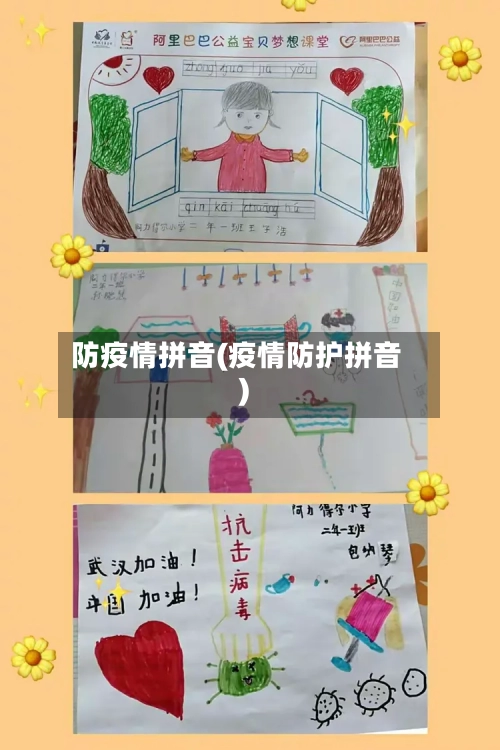 阿里巴巴公益宝贝梦想课堂
阿里巴巴公益
zhong guo jia yóu
qin kāi chuāng hù
阿力得尔小学二年一班王子浩
阿力得尔小学
二年一班
中国加油
防疫情拼音(疫情防护拼音
)
武汉加油!
中国加油!
抗击病毒
阿力得尔小学
二年一班
包纳琴